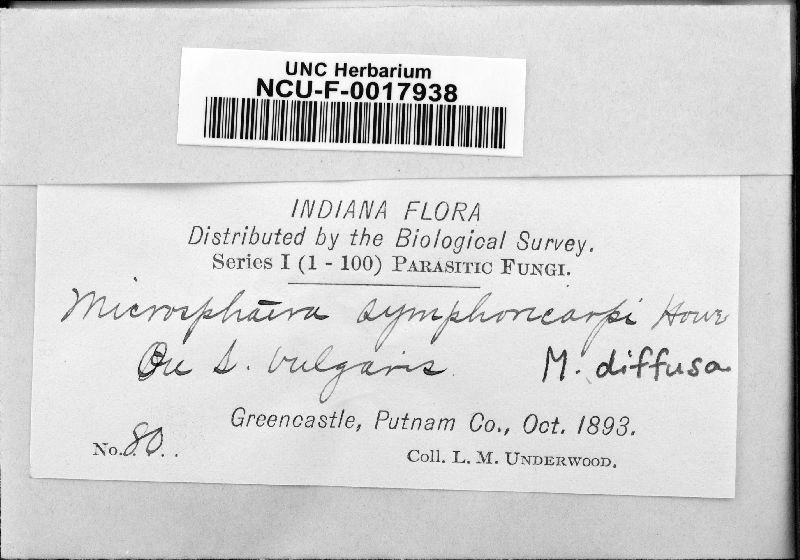 UNC Herbarium
NCU-F-0017938
INDIANA FLORA
Distributed by the Biological Survey.
Series I (1 - 100) PARASITIC FUNGI.
Microsphaera symphoricarpi Howe
On S. vulgaris. M. diffusa
Greencastle, Putnam Co., Oct. 1893.
No. 80. Coll. L. M. UNDERWOOD.